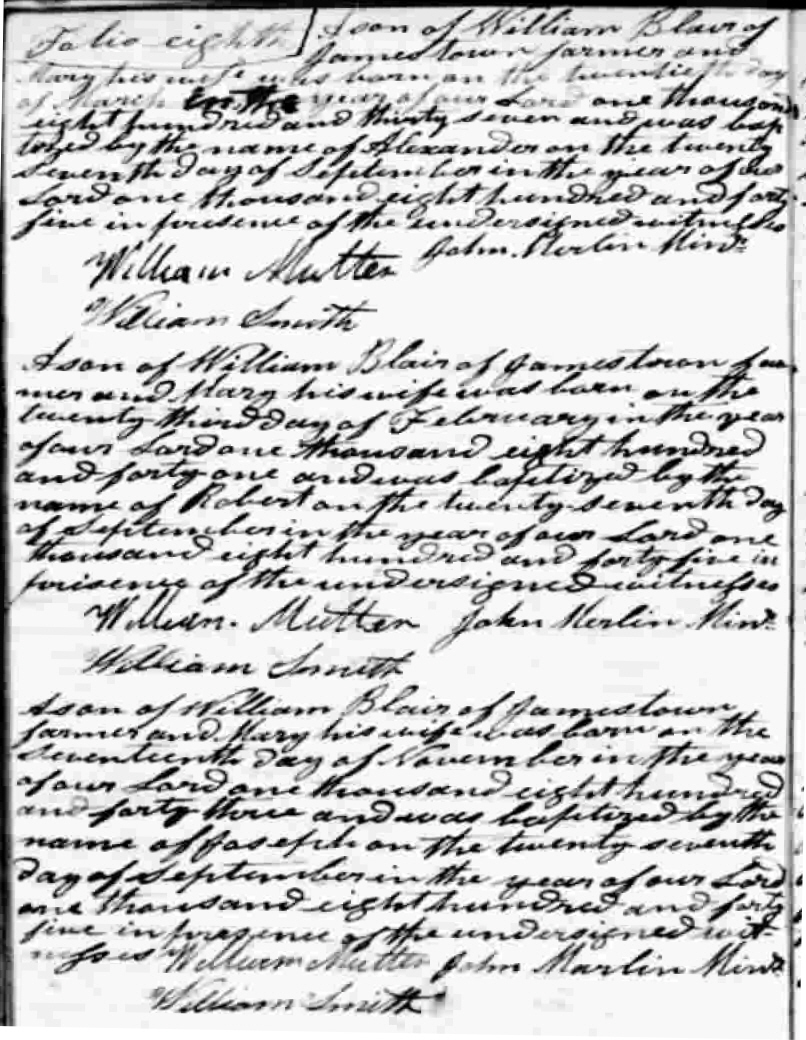 Folio eighth
A son of William Blair of
Jamestown farmer and
Mary his wife was born on the twentieth day
of March in the year of our Lord one thousand
eight hundred and thirty seven and was bap
tized by the name of Alexander on the twenty
seventh day of September in the year of our
Lord one thousand eight hundred and forty
five in presence of the undersigned witnesses
John Merlin Minr
William Mutter
William Smith
A son of William Blair of Jamestown far
mer and Mary his wife was born on the
twenty third day of February in the year
of our Lord one thousand eight hundred
and forty one and was baptized by the
name of Robert on the twenty seventh day
of September in the year of our Lord one
thousand eight hundred and forty five in
prisence of the undersigned witnesses
William. Mutter John Merlin Minr
William Smith
A son of William Blair of Jamestown
farmer and Mary his wife was born on the
seventeenth day of November in the year
of our Lord one thousand eight hundred
and forty three and was baptized by the
name of Joseph on the twenty seventh
day of September in the year of our Lord
one thousand eight hundred and forty
five in presence of the undersigned wit-
nesses William Mutter John Marlin Minr
William Smith